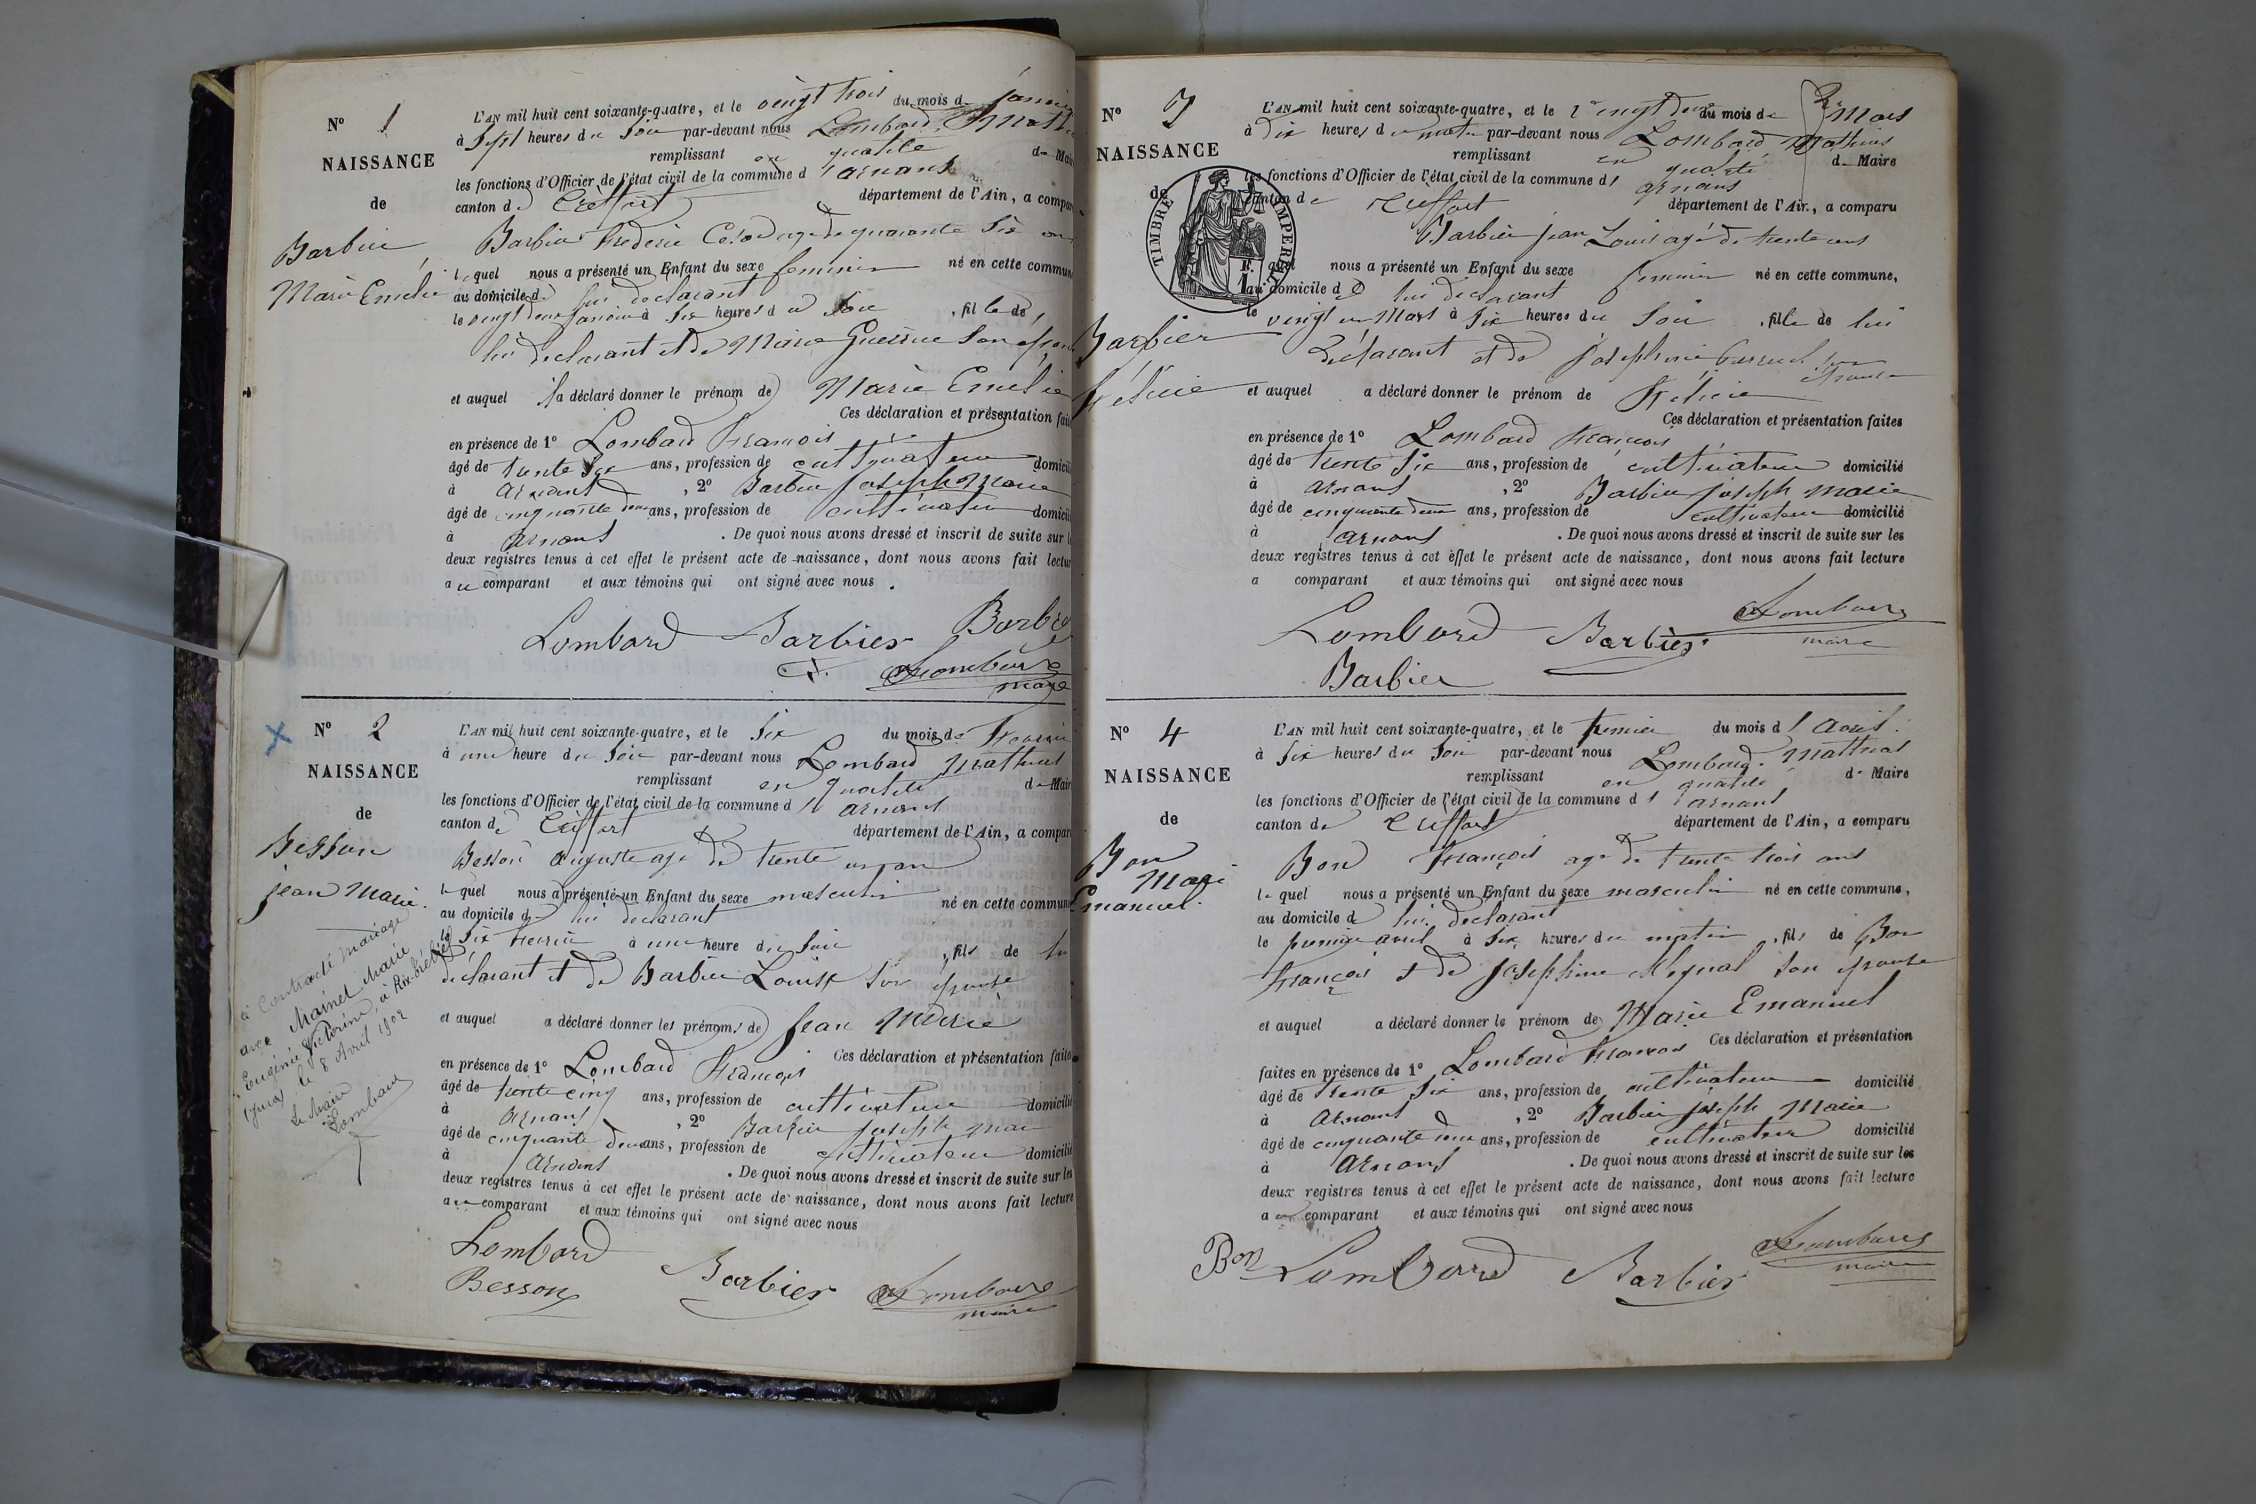 N° 1
NAISSANCE
de
Barbier
Marie Emelie
L'AN mil huit cent soixante-quatre, et le vingt trois du mois de janvier
à Sept heures du Soir par-devant nous Lombard
remplissant en qualité de Maire
les fonctions d'Officier de l'état civil de la commune d'arnans
canton de Treffort département de l'Ain, a comparu
Barbier frederic age de quarante Six ans
lequel nous a présenté un Enfant du sexe feminin né en cette commune
au domicile de lui declarant
le vingt deux janvier à Six heures du Soir, fille de
lui declarant et de Marie Son
et auquel il a déclaré donner le prénom de Marie Emelie
Ces déclaration et présentation
en présence de 1° Lombard francois
âgé de trente Six ans, profession de cultivateur domicilié
à arnans, 2° Barbier joseph Marie
âgé de cinquante deux ans, profession de cultivateur domicilié
à arnans. De quoi nous avons dressé et inscrit de suite sur
deux registres tenus à cet effet le présent acte de naissance, dont nous avons fait lecture
au comparant et aux témoins qui ont signé avec nous.
Lombard Barbier
Lombard
maire
N° 2
NAISSANCE
de
Besson
jean Marie.
à contracté mariage
avec Mainet Marie
Eugénie Victorine, à
(Jura) le 8 Avril 1902
Le Maire
Lombard
L'AN mil huit cent soixante-quatre, et le Six du mois de fevrier
à une heure du Soir par-devant nous Lombard Mathias
remplissant en qualité de Maire
les fonctions d'Officier de l'état civil de la commune d'arnans
canton de Treffort département de l'Ain, a comparu
Besson auguste age de trente un an
lequel nous a présenté un Enfant du sexe masculin né en cette commune
au domicile de lui declarant
le Six fevrier à une heure du Soir, fils de lui
declarant et de Barbier Louise Son epouse
et auquel a déclaré donner les prénoms de Jean Marie
Ces déclaration et présentation faites
en présence de 1° Lombard francois
âgé de trente cinq ans, profession de cultivateur domicilié
à arnans, 2° Barbier joseph Marie
âgé de cinquante deux ans, profession de cultivateur domicilié
à arnans. De quoi nous avons dressé et inscrit de suite sur les
deux registres tenus à cet effet le présent acte de naissance, dont nous avons fait lecture
au comparant et aux témoins qui ont signé avec nous
Lombard
Besson Barbier Lombard
maire
N° 3
NAISSANCE
de
TIMBRE IMPERIAL
1 F.
Barbier
felicie
L'AN mil huit cent soixante-quatre, et le vingt deux du mois de Mars
à dix heures du matin par-devant nous Lombard Mathias
remplissant en qualité de Maire
les fonctions d'Officier de l'état civil de la commune d'arnans
canton de Treffort département de l'Ain, a comparu
Barbier jean Louis agé de trente ans
lequel nous a présenté un Enfant du sexe feminin né en cette commune,
au domicile de lui declarant
le vingt un Mars à Six heures du Soir, fille de lui
déclarant et de josephine Son
epouse
et auquel a déclaré donner le prénom de felicie
Ces déclaration et présentation faites
en présence de 1° Lombard francois
âgé de trente Six ans, profession de cultivateur domicilié
à arnans, 2° Barbier joseph marie
âgé de cinquante deux ans, profession de cultivateur domicilié
à arnans. De quoi nous avons dressé et inscrit de suite sur les
deux registres tenus à cet effet le présent acte de naissance, dont nous avons fait lecture
a comparant et aux témoins qui ont signé avec nous
Lombard Barbier Lombard
maire
Barbier
N° 4
NAISSANCE
de
Bon
Marie
Emanuel.
L'AN mil huit cent soixante-quatre, et le premier du mois d'avril
à Six heures du Soir par-devant nous Lombard Mathias
remplissant en qualité de Maire
les fonctions d'Officier de l'état civil de la commune d'arnans
canton de Treffort département de l'Ain, a comparu
Bon François age de trente trois ans
lequel nous a présenté un Enfant du sexe masculin né en cette commune,
au domicile de lui declarant
le premier avril à Six heures du matin, fils de Bon
françois et de josephine Son epouse
et auquel a déclaré donner le prénom de Marie Emanuel
Ces déclaration et présentation
faites en présence de 1° Lombard francois
âgé de trente Six ans, profession de cultivateur domicilié
à arnans, 2° Barbier joseph Marie
âgé de cinquante deux ans, profession de cultivateur domicilié
à arnans. De quoi nous avons dressé et inscrit de suite sur les
deux registres tenus à cet effet le présent acte de naissance, dont nous avons fait lecture
au comparant et aux témoins qui ont signé avec nous
Bon Lombard Barbier Lombard
maire